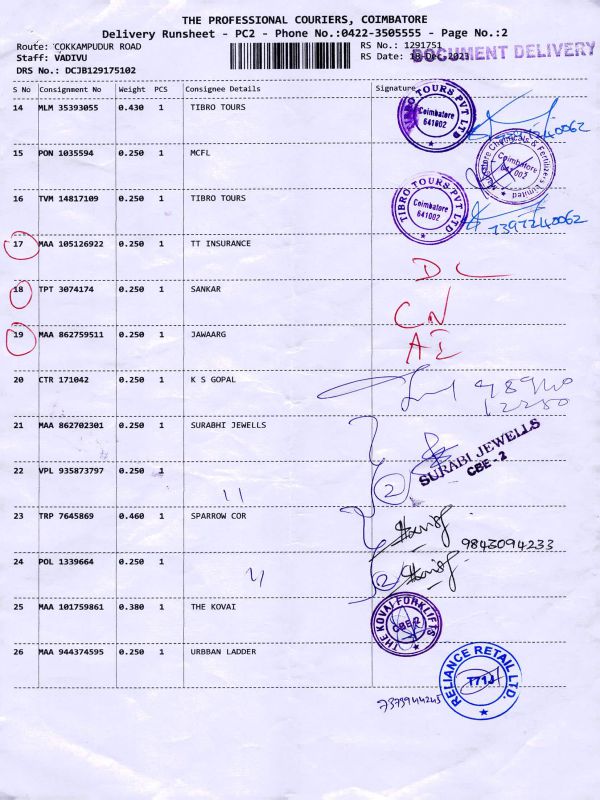 THE PROFESSIONAL COURIERS, COIMBATORE
Delivery Runsheet - PC2 - Phone No.:0422-3505555 - Page No.:2
Route: COKKAMPUDUR ROAD RS No.: 1291751
DOCUMENT DELIVERY
Staff: VADIVU RS Date: 18-Dec-2023
DRS No.: DCJB129175102
S No Consignment No Weight PCS Consignee Details Signature
14 MLM 35393055 0.430 1 TIBRO TOURS
TIBRO TOURS PVT LTD
Coimbatore
641002
15 PON 1035594 0.250 1 MCFL
Coimbatore
16 TVM 14817109 0.250 1 TIBRO TOURS
TIBRO TOURS PVT LTD
Coimbatore
641002
7397240062
17 MAA 105126922 0.250 1 TT INSURANCE
DL
18 TPT 3074174 0.250 1 SANKAR
CN
19 MAA 862759511 0.250 1 JAWAARG
AE
20 CTR 171042 0.250 1 K S GOPAL
21 MAA 862702301 0.250 1 SURABHI JEWELLS
SURABI JEWELLS
CBE - 2
22 VPL 935873797 0.250 1 11
2
23 TRP 7645869 0.460 1 SPARROW COR
9843094233
24 POL 1339664 0.250 1 11
2
25 MAA 101759861 0.380 1 THE KOVAI
THE KOVAI FORKLIFTS
CBE-2
26 MAA 944374595 0.250 PC 1 URBBAN LADDER
RELIANCE RETAIL LTD.
T71J
7373944245